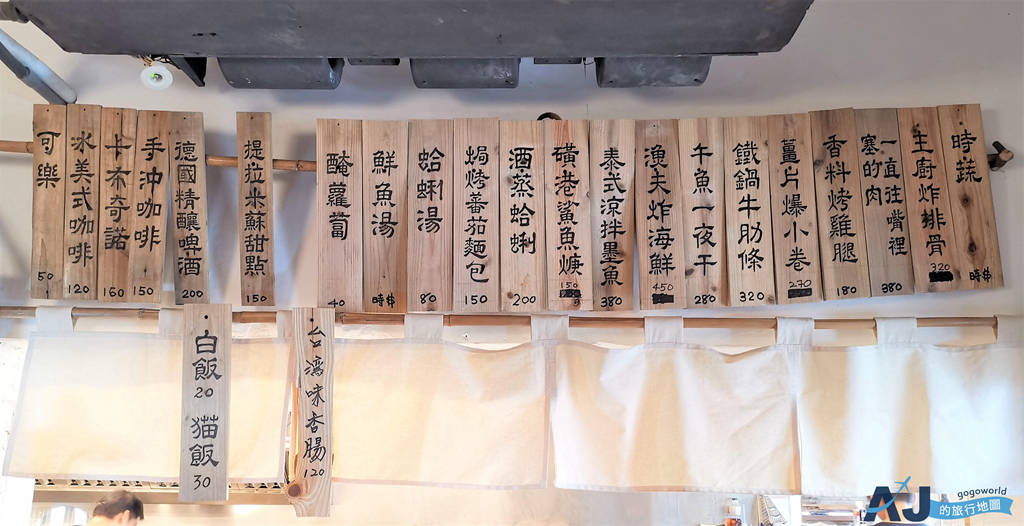 時蔬
時$
主廚炸排骨
320
一直往嘴裡
塞的肉
380
香料烤雞腿
180
薑片爆小卷
270
鐵鍋牛肋條
320
午魚一夜干
280
漁夫炸海鮮
450
泰式涼拌墨魚
380
磺港鯊魚焿
150
酒蒸蛤蜊
200
焗烤番茄麵包
150
蛤蜊湯
80
鮮魚湯
時$
醃蘿蔔
40
提拉米蘇甜點
150
德國精釀啤酒
200
手沖咖啡
150
卡布奇諾
160
冰美式咖啡
120
可樂
50
台灣味香腸
120
白飯
20
猫飯
30
AJ
gogoworld
的旅行地圖